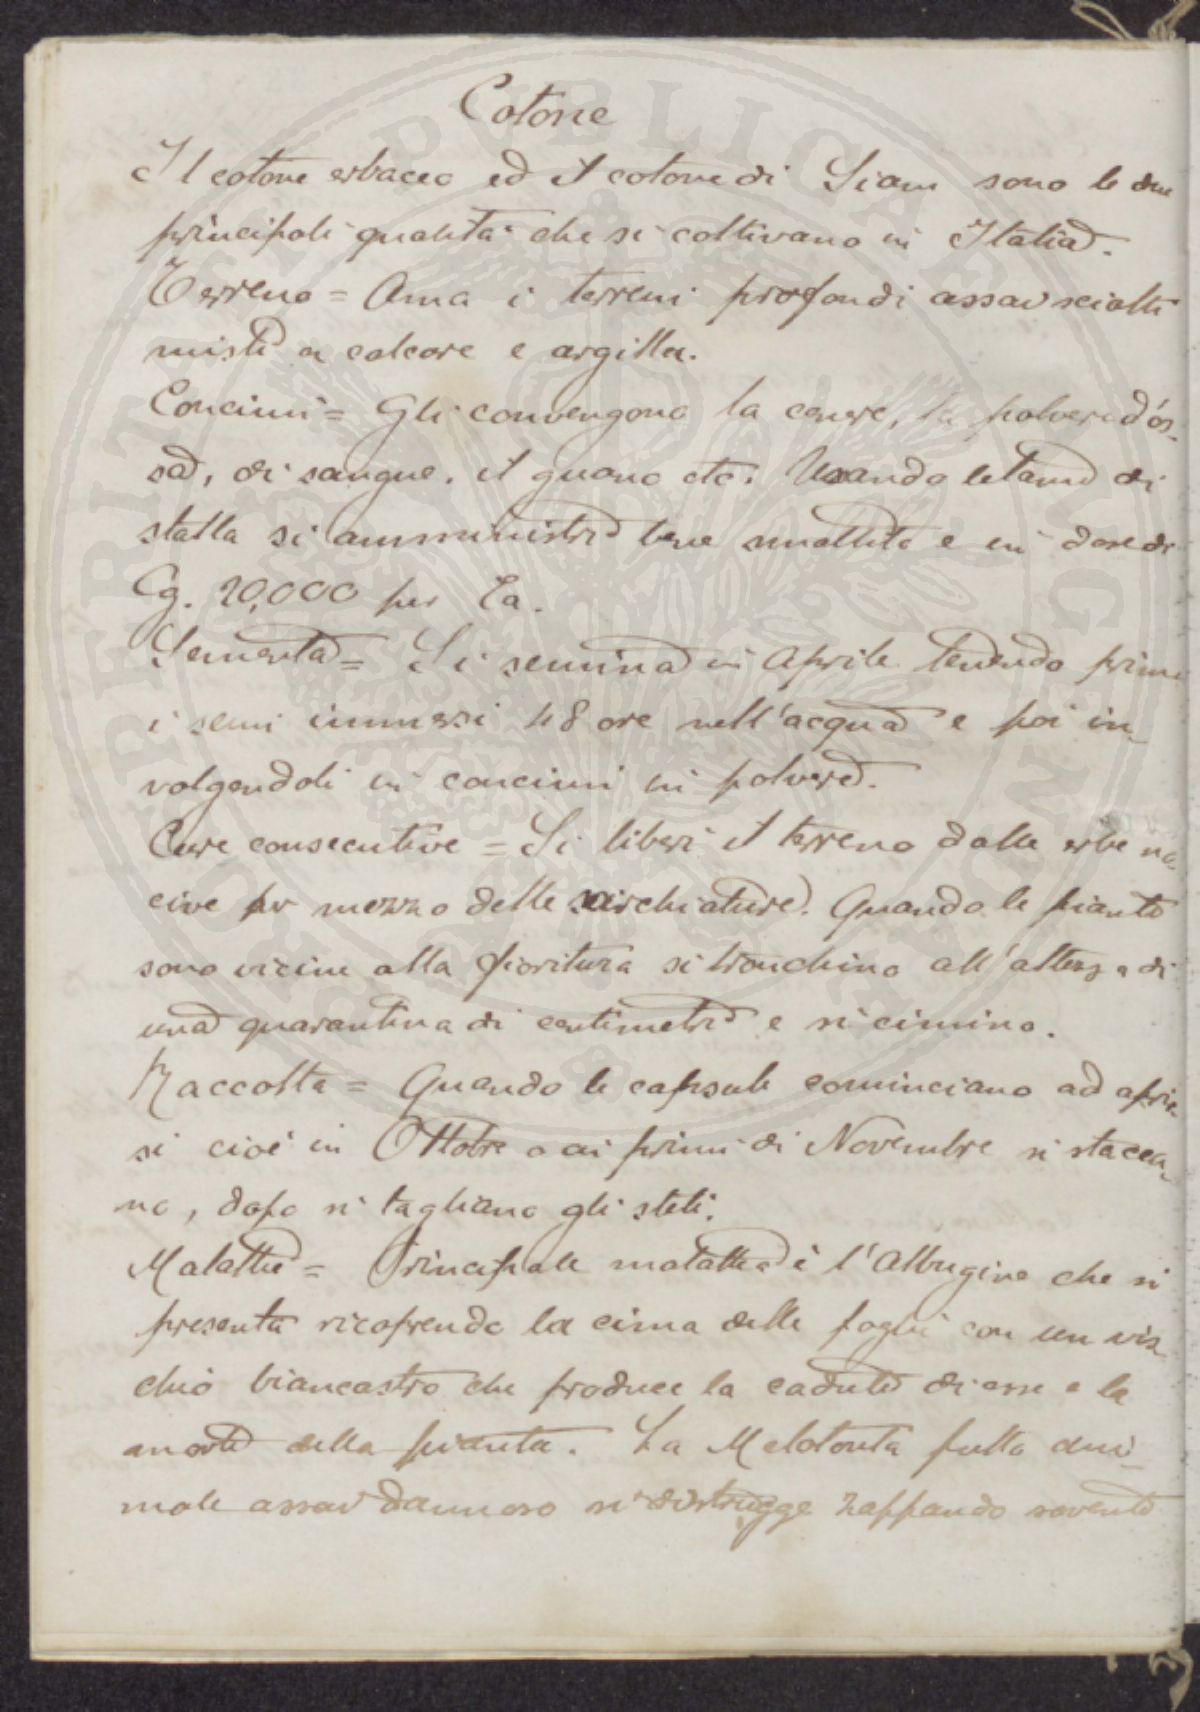 Cotone
Il cotone erbaceo ed il cotone di Siam sono le due
principali qualità che si coltivano in Italia.
Terreno = Ama i terreni profondi assai sciolti
misti a calcare e argilla.
Concimi = Gli convengono la cenere, la polvere d'os-
sa, di sangue, il guano etc. Usando letame di
stalla si amministri bene smaltito e in dose di
Cg. 20,000 per Ea.
Sementa = Si semina in Aprile tenendo prima
i semi immersi 48 ore nell'acqua e poi in-
volgendoli in concimi in polvere.
Cure consecutive = Si liberi il terreno dalle erbe no-
cive per mezzo delle sarchiature. Quando le piante
sono vicine alla fioritura si tronchino all'altezza di
una quarantina di centimetri e si cimino.
Raccolta = Quando le capsule cominciano ad aprir-
si cioè in Ottobre o ai primi di Novembre si stacca-
no, dopo si tagliano gli steli.
Malattie = Principale malattia è l'Albugine che si
presenta ricoprendo la cima delle foglie con un vis-
chio biancastro che produce la caduta di esse e la
morte della pianta. La Melolonta fullo ani-
male assai dannoso si distrugge zappando sovente
PROPERITATI PUBLICAE AUGENDAE